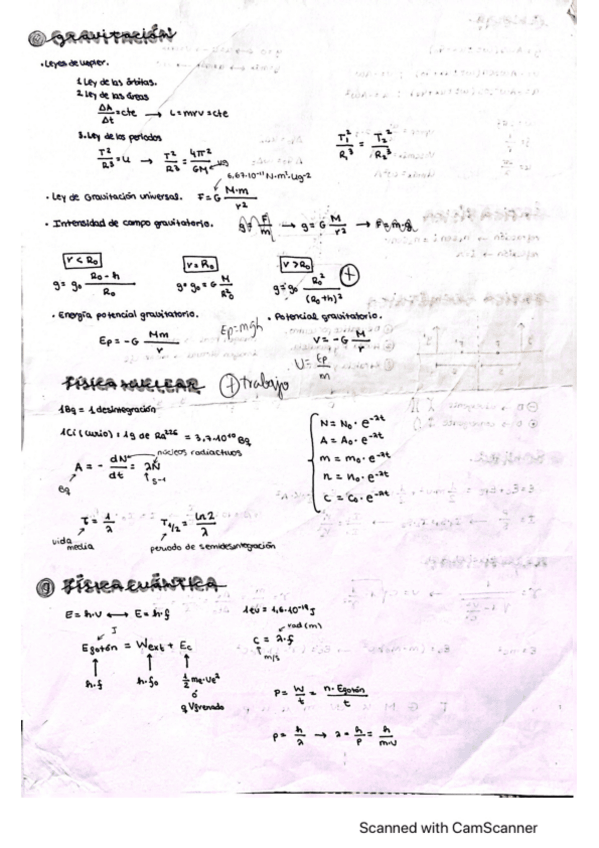 gravitación
• Leyes de Kepler.
1. Ley de las órbitas.
2. Ley de las áreas
ΔA/Δt = cte → L = mrv = cte
3. Ley de los periodos
T²/R³ = K → T²/R³ = 4π²/GM
T₁²/R₁³ = T₂²/R₂³
kg
6,67·10⁻¹¹ N·m²·kg⁻²
• Ley de Gravitación universal. F = G M·m/r²
• Intensidad de campo gravitatorio. g = F/m → g = G M/r² → F = m·g
r < R₀ r = R₀ r > R₀
g = g₀ R₀ - h/R₀ g = g₀ = G M/R₀² g = g₀ R₀²/(R₀+h)² +
• Energía potencial gravitatorio. • Potencial gravitatorio.
Ep = -G Mm/r Ep = mgh V = -G M/r
U = Ep/m
FÍSICA NUCLEAR + trabajo
1Bq = 1 desintegración
1Ci (curio) = 1g de Ra²²⁶ = 3,7·10¹⁰ Bq
núcleos radiactivos
A = - dN/dt = λN
Bq s⁻¹
N = N₀ · e⁻λt
A = A₀ · e⁻λt
m = m₀ · e⁻λt
n = n₀ · e⁻λt
C = C₀ · e⁻λt
τ = 1/λ T₁/₂ = ln2/λ
vida media periodo de semidesintegración
9 FÍSICA CUÁNTICA
E = h·ν ↔ E = h·f 1eV = 1,6·10⁻¹⁹ J
J rad (m)
Efotón = Wext + Ec c = λ·f
m/s
h·f h·f₀ ½ me·ve²
ó
q Vfrenado
P = W/t = n·Efotón/t
p = h/λ → λ = h/p = h/m·v
Scanned with CamScanner